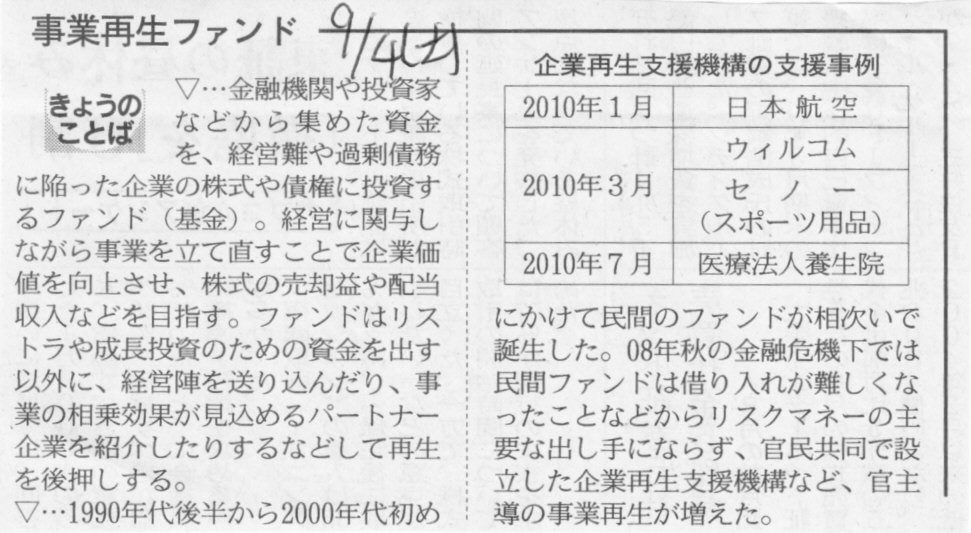 事業再生ファンド
9/4(土)
きょうの
ことば
▽…金融機関や投資家
などから集めた資金
を、経営難や過剰債務
に陥った企業の株式や債権に投資す
るファンド（基金）。経営に関与し
ながら事業を立て直すことで企業価
値を向上させ、株式の売却益や配当
収入などを目指す。ファンドはリス
トラや成長投資のための資金を出す
以外に、経営陣を送り込んだり、事
業の相乗効果が見込めるパートナー
企業を紹介したりするなどして再生
を後押しする。
▽…1990年代後半から2000年代初め
企業再生支援機構の支援事例
2010年１月 日本航空
ウィルコム
2010年３月 セノー
(スポーツ用品)
2010年７月 医療法人養生院
にかけて民間のファンドが相次いで
誕生した。08年秋の金融危機下では
民間ファンドは借り入れが難しくな
ったことなどからリスクマネーの主
要な出し手にならず、官民共同で設
立した企業再生支援機構など、官主
導の事業再生が増えた。